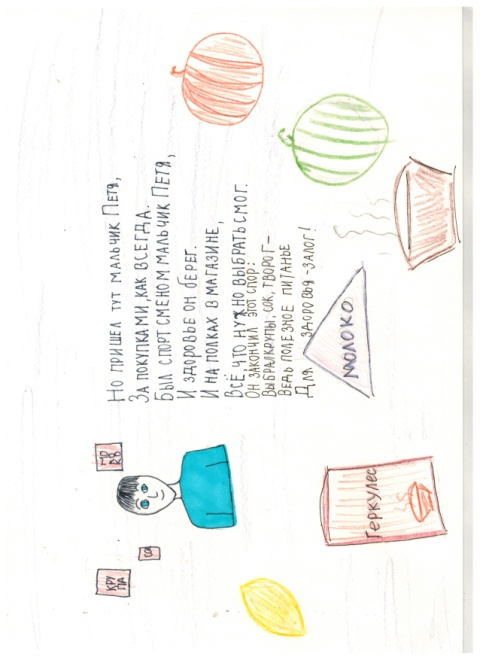 Но пришел тут мальчик Петя,
За покупками, как всегда.
Был спортсменом мальчик Петя,
И здоровье он берег.
И на полках в магазине,
Всё, что нужно выбрать смог.
Он закончил этот спор:
Выбрал крупы, сок, творог –
Ведь полезное питанье
Для здоровья - залог!
КРУПА
МОЛОКО
Геркулес